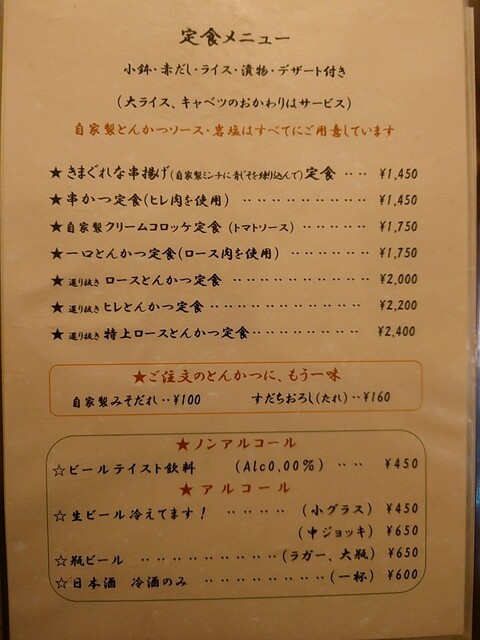 定食メニュー
小鉢・赤だし・ライス・漬物・デザート付き
(大ライス、キャベツのおかわりはサービス)
自家製とんかつソース・岩塩はすべてにご用意しています
★きまぐれな串揚げ(自家製ミンチに青じそを練り込んで)定食 ‥‥ ¥1,450
★串かつ定食(ヒレ肉を使用) ‥‥‥‥‥‥‥‥‥ ¥1,450
★自家製クリームコロッケ定食 (トマトソース) ‥‥‥‥‥‥ ¥1,750
★一口とんかつ定食(ロース肉を使用) ‥‥‥‥‥‥ ¥1,750
★選り抜き ロースとんかつ定食 ‥‥‥‥‥‥‥‥‥‥ ¥2,000
★選り抜き ヒレとんかつ定食 ‥‥‥‥‥‥‥‥‥‥ ¥2,200
★選り抜き 特上ロースとんかつ定食‥‥‥‥‥‥‥‥ ¥2,400
★ご注文のとんかつに、もう一味
自家製みそだれ‥¥100 すだちおろし(たれ)‥¥160
★ノンアルコール
☆ビールテイスト飲料 (Alc0.00%) ‥‥ ¥450
★アルコール
☆生ビール冷えてます! ‥‥‥‥ (小グラス) ¥450
(中ジョッキ) ¥650
☆瓶ビール ‥‥‥‥‥‥‥‥‥‥(ラガー、大瓶) ¥650
☆日本酒 冷酒のみ ‥‥‥‥‥‥‥‥‥(一杯) ¥600